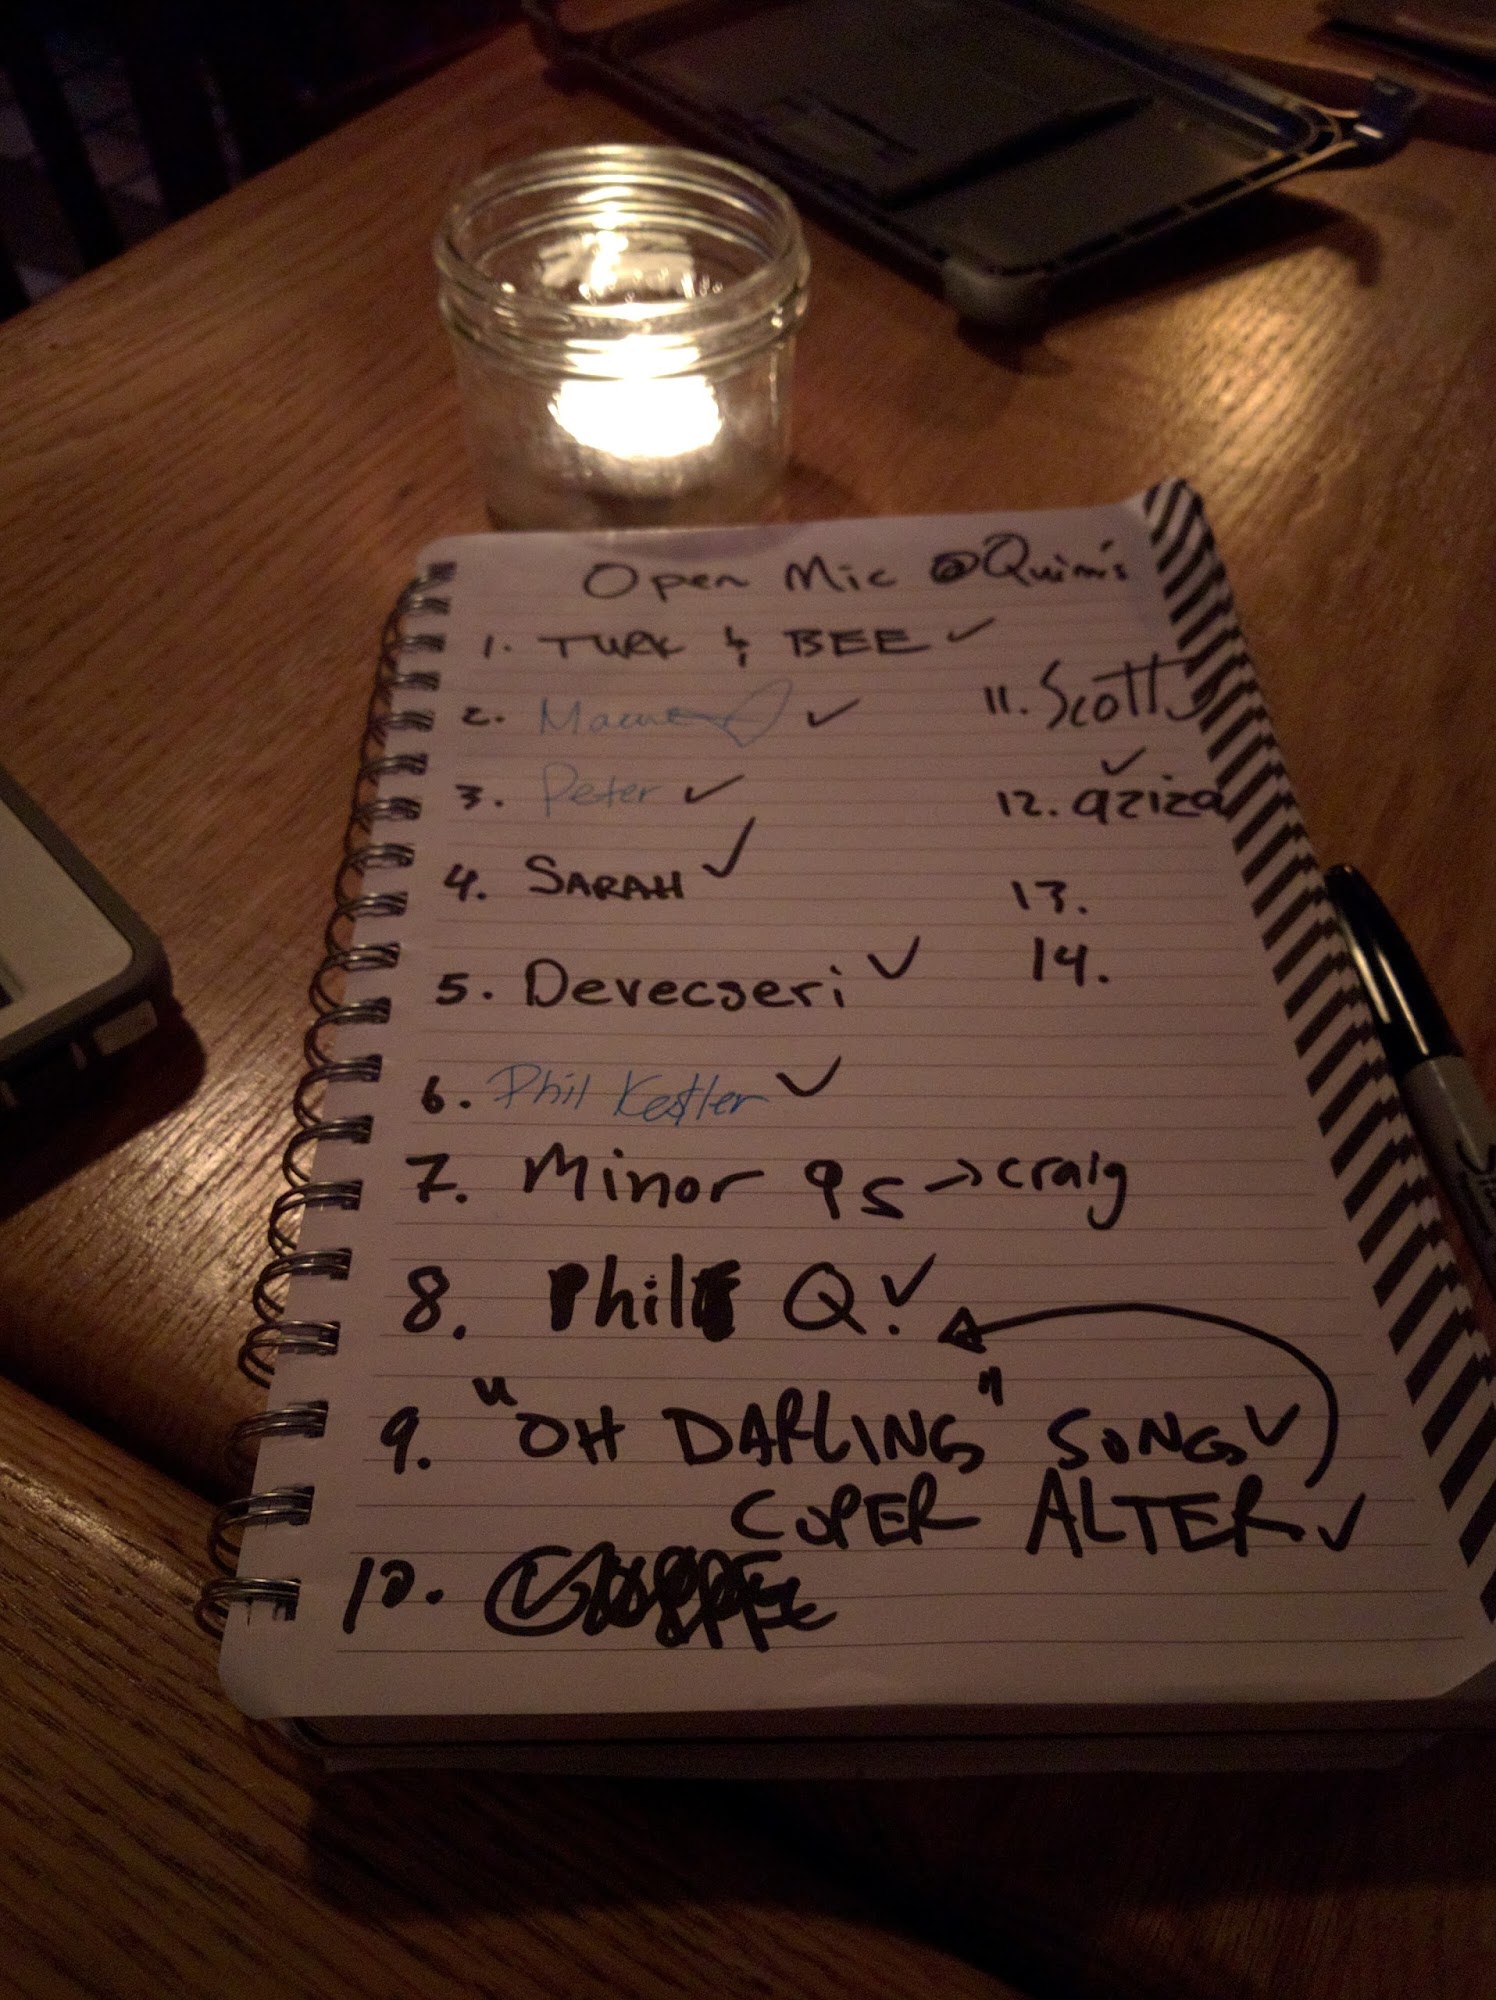 Open Mic @Quinn's
1. TURK & BEE ✓
2. ✓
3. Peter ✓
4. SARAH ✓
5. Devecseri ✓
6. Phil Kestler ✓
7. Minor 9s → craig
8. Phil Q. ✓
9. "OH DARLING" SONG ✓
CUPER ALTER ✓
10.
11. Scotty
✓
12. aziza
13.
14.